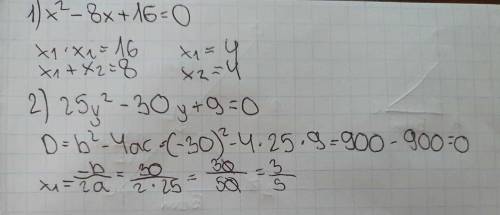 1) x² - 8x + 16 = 0
x₁ · x₂ = 16    x₁ = 4
x₁ + x₂ = 8    x₂ = 4
2) 25y² - 30y + 9 = 0
D = b² - 4ac = (-30)² - 4 · 25 · 9 = 900 - 900 = 0
x₁ = -b/2a = 30/2·25 = 30/50 = 3/5